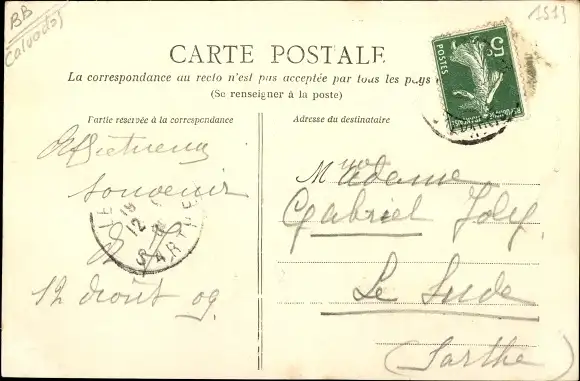 BB
Calvados
1513
CARTE POSTALE
La correspondance au recto n'est pas acceptée par tous les pays
(Se renseigner à la poste)
5
POSTES
Partie réservée à la correspondance
Adresse du destinataire
Affectueux
souvenir
12 Août 09
SARTHE
Madame
Gabriel Joly
Le Lude
(Sarthe)